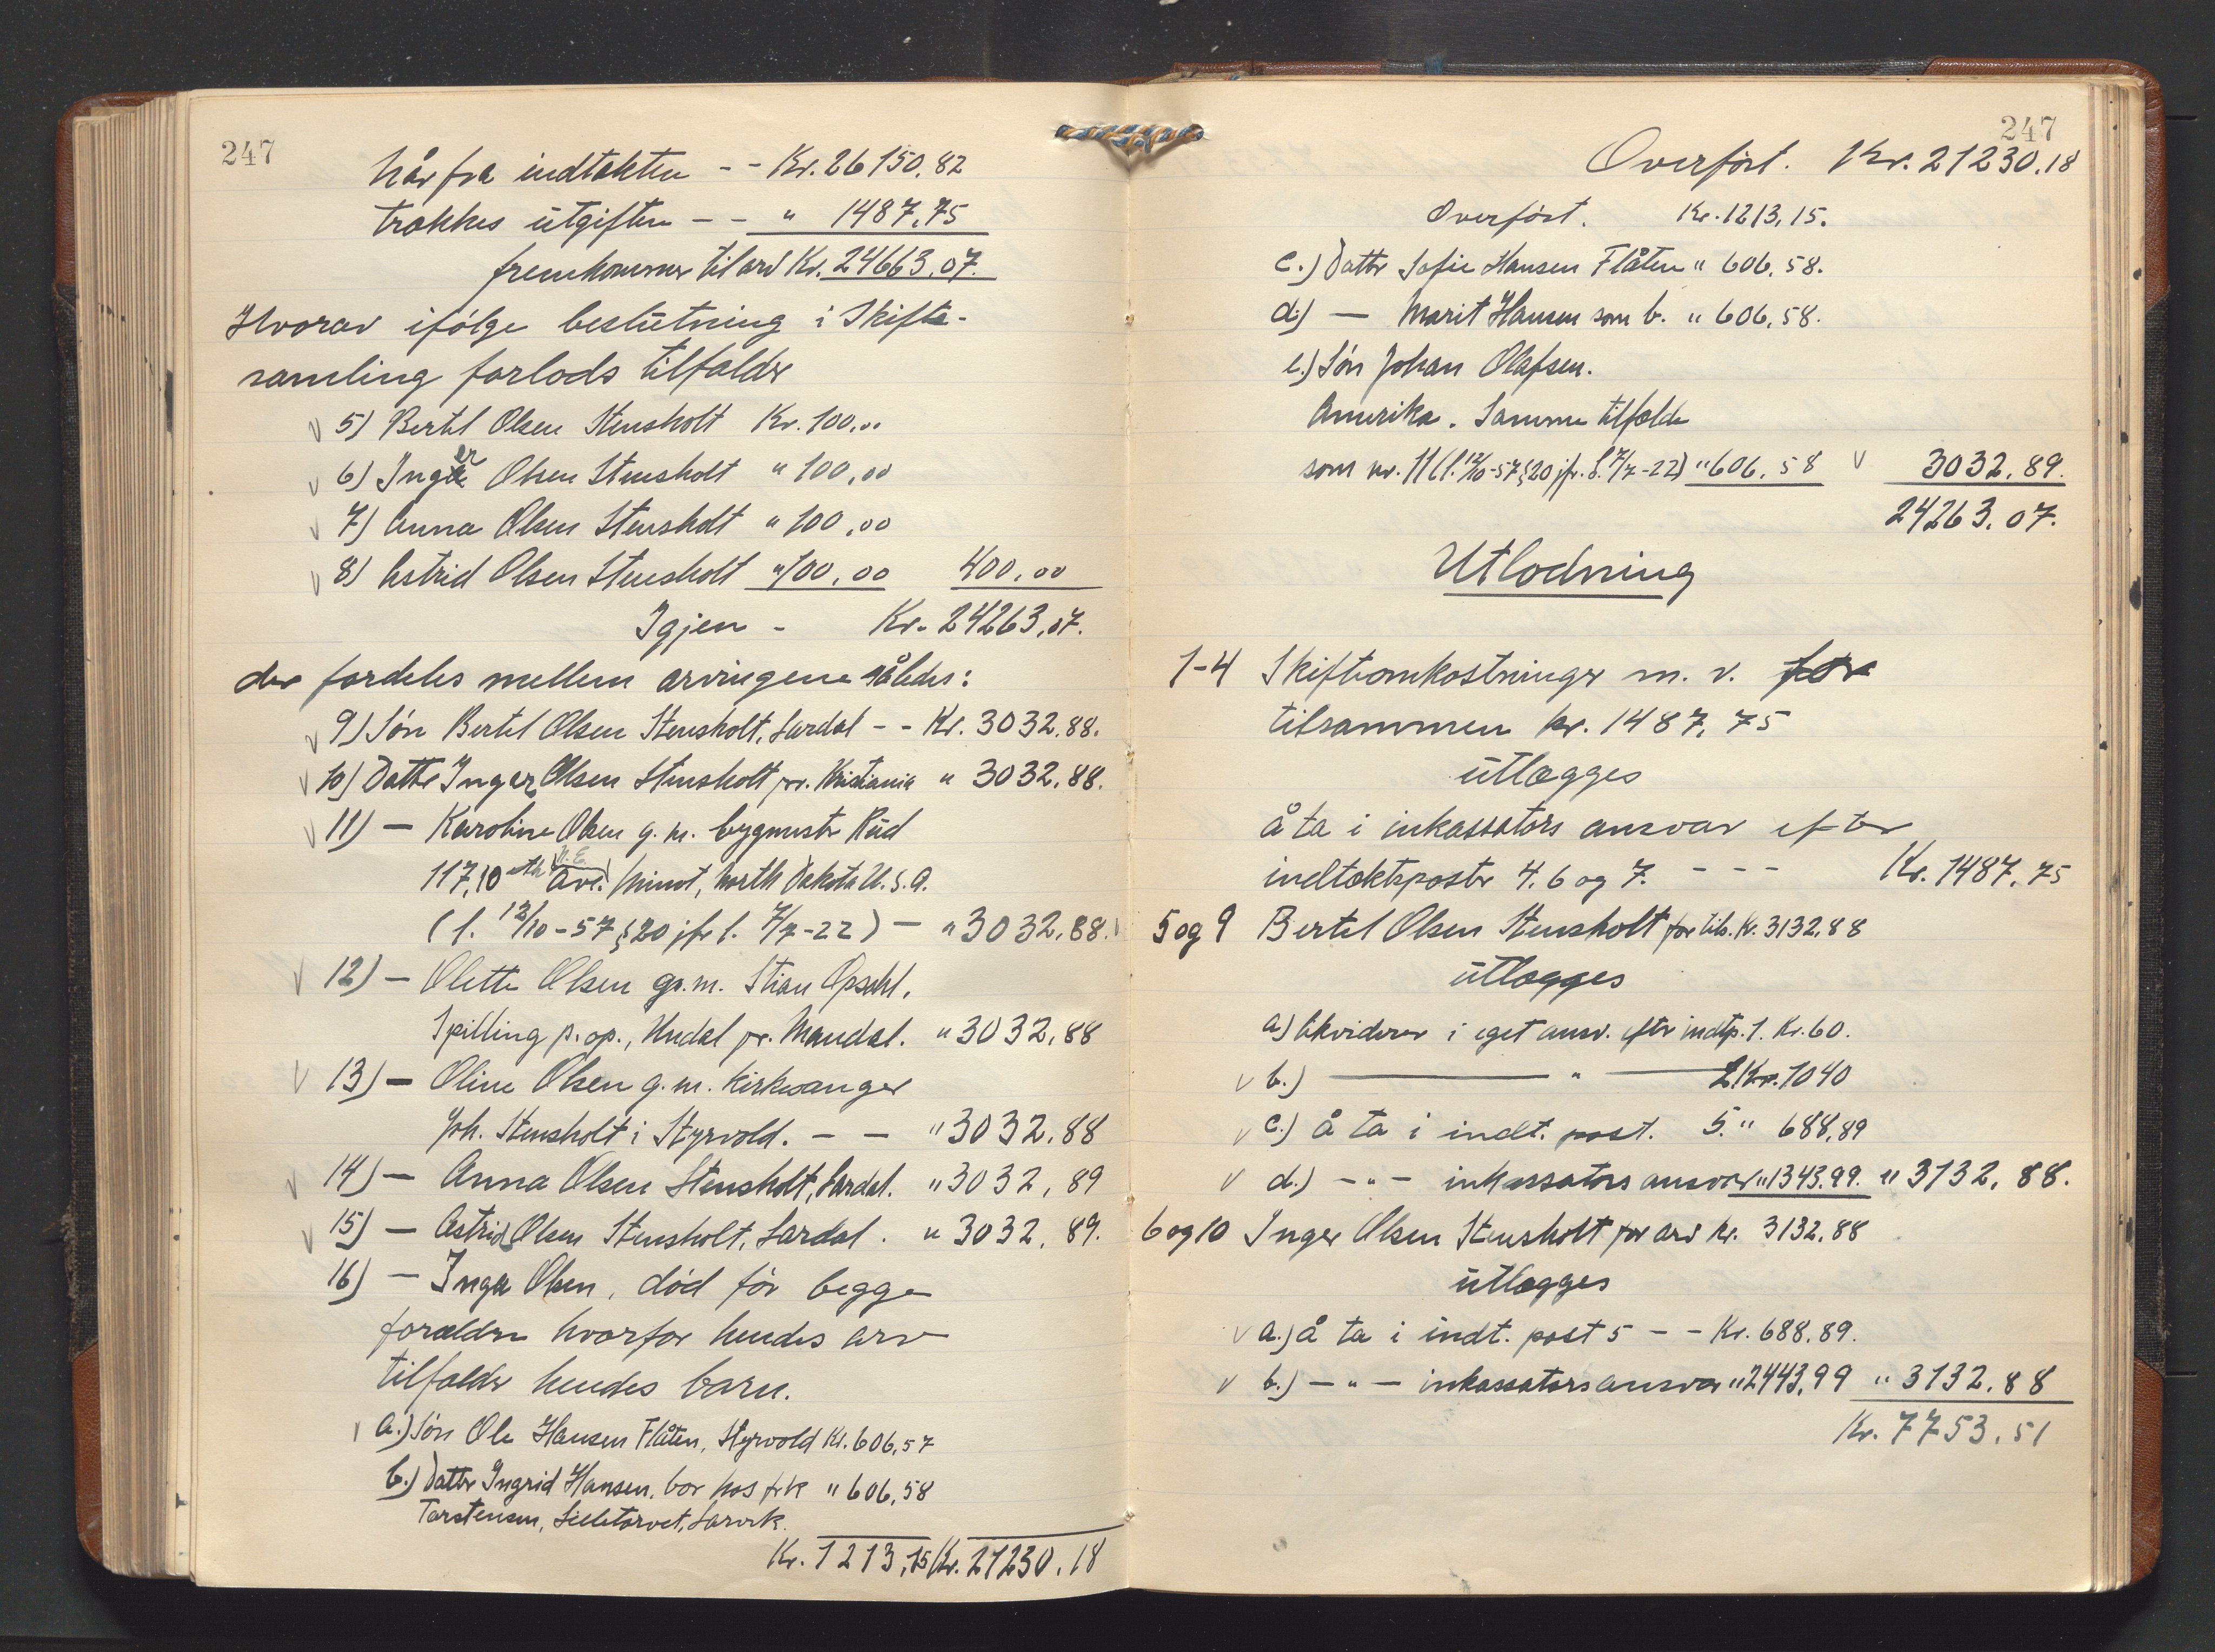 247
hårfra indtækten - - Kr. 26150.82
trækkes utgiften - - " 1487.75
fremkommer til arv Kr. 24663.07.
Hvorav ifølge beslutning i Skifte-
samling forlods tilfalder
5) Bertel Olsen Stensholt Kr. 100.00
6) Inger Olsen Stensholt " 100,00
7) Anna Olsen Stensholt " 100,00
8) Astrid Olsen Stensholt " 100,00 400.00
Igjen - Kr. 24263,07.
der fordeles mellem arvingene således:
9) Søn Bertel Olsen Stensholt, Lardal - - Kr. 3032.88.
10) Datter Inger Olsen Stensholt pr. Kristiania " 3032.88.
11) — Karoline Olsen g. m. bygmester Rud
117,10th Ave. N.E. Minot, North Dakota U.S.A.
(l. 12/10-57 § 20 jfr l. 7/7-22) — " 3032.88.
12) — Olette Olsen g. m. Stian Opsahl,
Spilling p. op., Hudal pr. Mandal. " 3032,88
13) — Oline Olsen g. m. kirkesanger
Joh. Stensholt i Styrvold. - — " 3032,88
14) — Anna Olsen Stensholt, Lardal. " 3032,89
15) — Astrid Olsen Stensholt, Lardal. " 3032,89.
16) — Inga Olsen, død før begge
forældre hvorfor hendes arv
tilfalder hendes barn.
a.) Søn Ole Hansen Flåten, Styrvold Kr. 606,57
b.) Datter Ingrid Hansen, bor hos frk " 606,58
Torstensen, Lilletorvet, Larvik.
Kr. 1213,15 Kr. 21230.18
247
Overført. Kr. 21230.18
Overført. Kr. 1213,15.
c.) Datter Sofie Hansen Flåten " 606.58.
d.) — Marit Hansen som b. " 606,58.
e.) Søn Johan Olafsen.
Amerika. Samme tilfælde
som nr. 11 (l. 12/10-57 § 20 jfr. l. 7/7-22) " 606.58 3032.89.
24263.07.
Utlodning
1-4 Skifteomkostninger m. v. for
tilsammen kr. 1487,75
utlægges
å ta i inkassators ansvar efter
indtektsposter 4. 6 og 7. - - - Kr. 1487,75
5 og 9 Bertel Olsen Stensholt for tils. Kr. 3132,88
utlægges
a) likviderer i eget ansv. efter indtp. 1. Kr. 60.
b.) — " — 2 Kr. 1040
c.) å ta i indt. post. 5. " 688,89
d.) - " - inkassators ansvar " 1343.99. " 3132,88.
6 og 10 Inger Olsen Stensholt for arv kr. 3132,88
utlægges
a.) å ta i indt. post 5 - - Kr. 688,89.
b.) - " - inkassators ansvar " 2443,99 " 3132.88
Kr. 7753.51